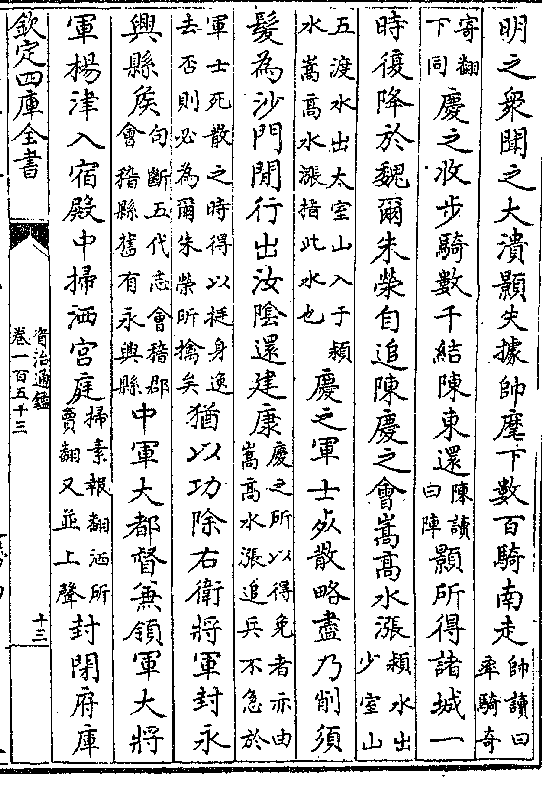 明之衆聞之大潰顥失據帥麾下數百騎南走帥讀曰率騎奇
寄翻下同慶之收步騎數千結陳東還陳讀曰陣顥所得諸城一
時復降於魏爾朱榮自追陳慶之會嵩髙水漲潁水出少室山
五渡水出太室山入于潁水嵩髙水漲指此水也慶之軍士死散略盡乃削須
髮為沙門間行出汝隂還建康慶之所以得免者亦由嵩髙水漲追兵不急於
軍士死散之時得以挺身逸去否則必為爾朱榮所擒矣猶以功除右衛將軍封永
興縣侯句斷五代志會稽郡會稽縣舊有永興縣中軍大都督兼領軍大將
軍楊津入宿殿中掃洒宫庭掃素報翻洒所賣翻又並上聲封閉府庫
欽定四庫全書
資治通鑑
卷一百五十三
十三